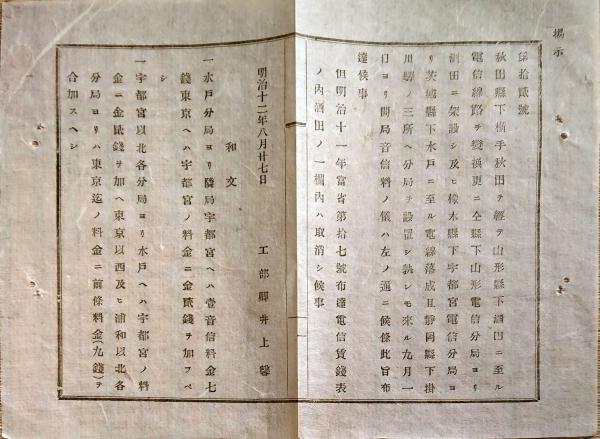 揭示
第拾貳號
秋田縣下橫手秋田ヲ經テ山形縣下酒田ニ至ル
電信線路ヲ變換更ニ仝縣下山形電信分局ヨリ
酒田ニ架設シ及ヒ橡木縣下宇都宮電信分局ヨ
リ茨城縣下水戶ニ至ル電線落成且靜岡縣下掛
川驛ノ三所ヘ分局ヲ設置シ孰レモ來ル九月一
日ヨリ開局音信料ノ儀ハ左ノ通ニ候條此旨布
達候事
但明治十一年當省第拾七號布達電信賃錢表
ノ內酒田ノ一欄內ハ取消シ候事
明治十二年八月廿七日 工部卿井上馨
和文
一水戶分局ヨリ隣局宇都宮ヘハ壹音信料金七
錢東京ヘハ宇都宮ノ料金ニ金貳錢ヲ加フヘ
シ
一宇都宮以北各分局ヨリ水戶ヘハ宇都宮ノ料
金ニ金貳錢ヲ加ヘ東京以西及ヒ浦和以北各
分局ヨリハ東京迄ノ料金ニ前條料金(九錢)ヲ
合加スヘシ